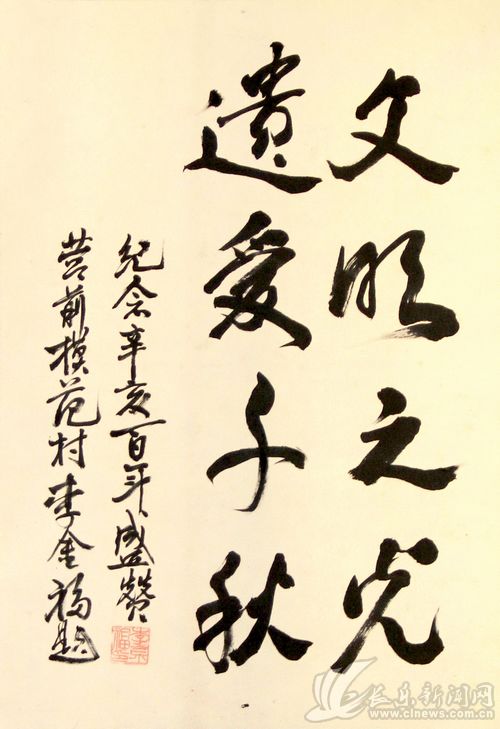 文明之光
遗爱千秋
纪念辛亥百年盛赞
营前模范村李金福题
长乐新闻网
www.clnews.com.cn